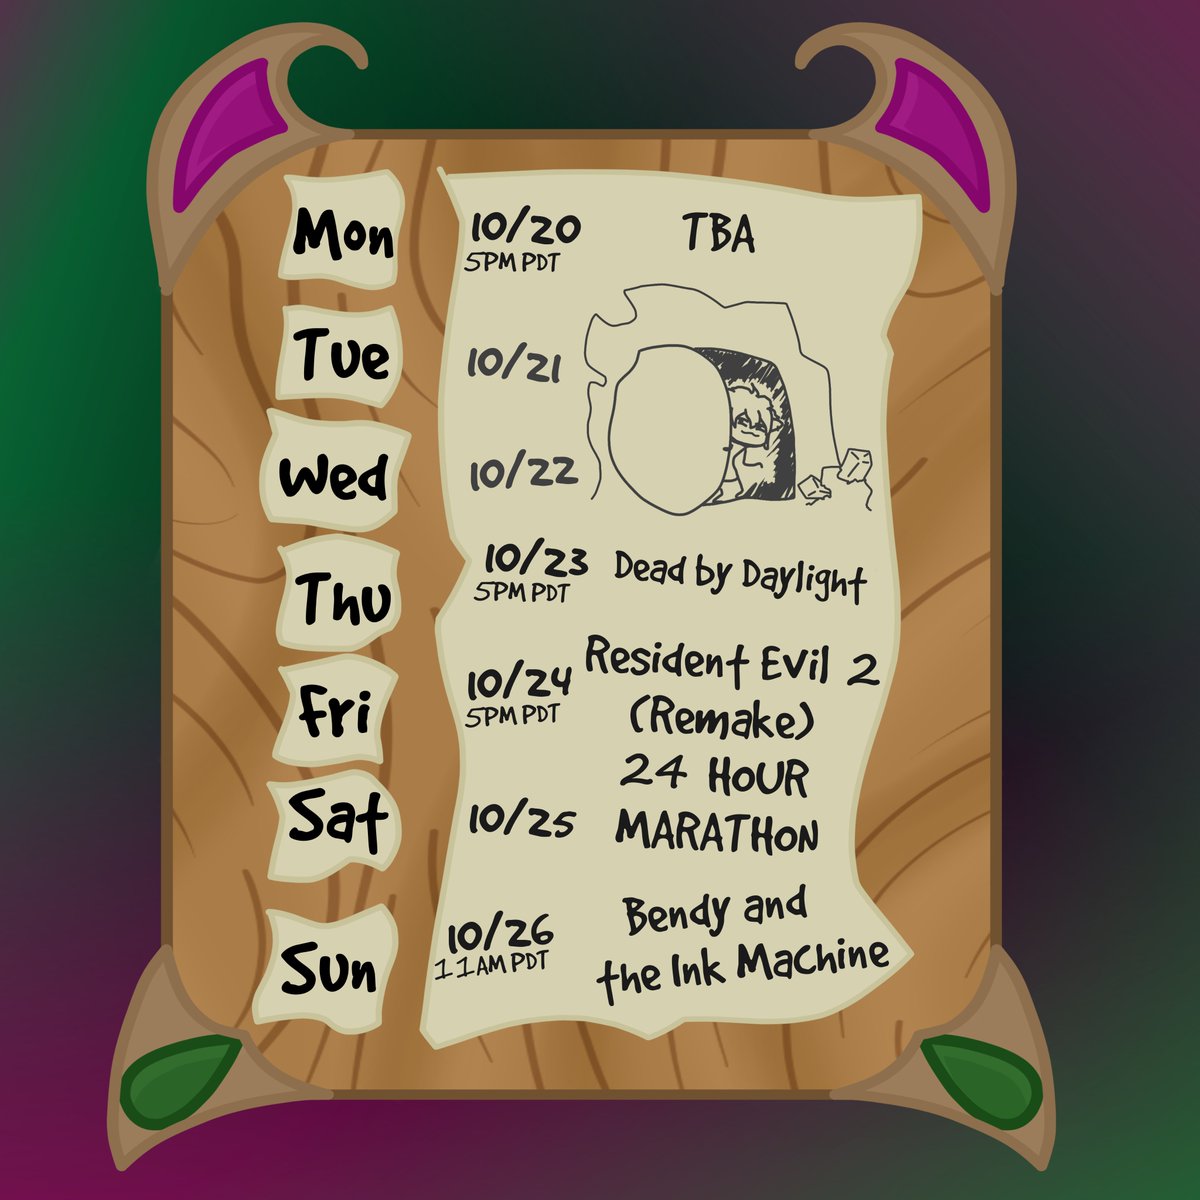 Mon
10/20
5PM PDT
TBA
Tue
10/21
Wed
10/22
Thu
10/23
5PM PDT
Dead by Daylight
Fri
10/24
5PM PDT
Resident Evil 2
(Remake)
24 HOUR
MARATHON
Sat
10/25
Sun
10/26
11AM PDT
Bendy and
the Ink Machine